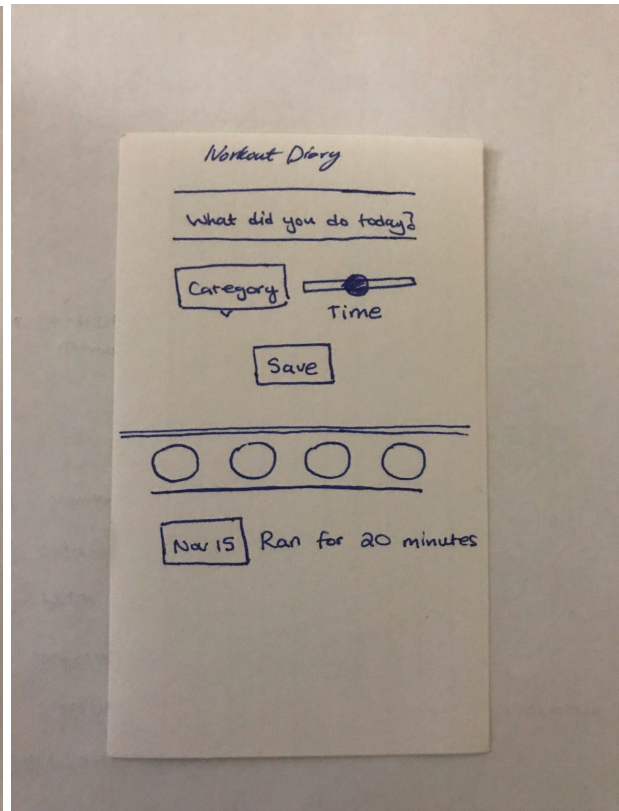 Workout Diary
What did you do today?
Category
Time
Save
Nov 15 Ran for 20 minutes